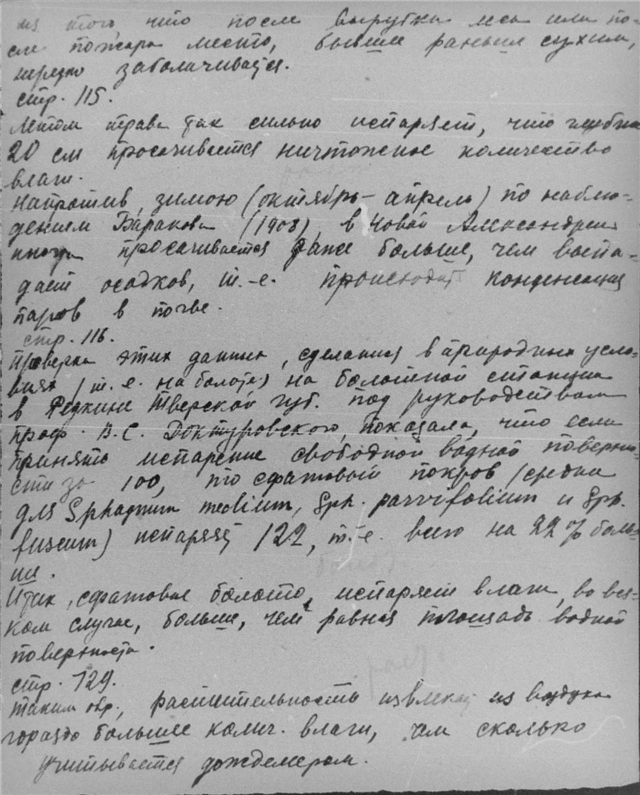 из того что после вырубки леса или по-
сле пожара место, бывшее раньше сухим,
нередко заболачивается.
стр. 115.
Летом трава так сильно испаряет, что глубже
20 см просачивается ничтожное количество
влаги.
Напротив, зимою (октябрь – апрель) по наблю-
дениям Баракова (1908), в Новой Александрии
иногда просачивается даже больше, чем выпа-
дает осадков, т.-е. происходит конденсация
паров в почве.
стр. 116.
Проверка этих данных, сделанная в природных усло-
виях (т. е. на болоте) на болотной станции
в Редкине Тверской губ. под руководством
проф. В. С. Доктуровского, показала, что если
принять испарение свободной водной поверхно-
сти за 100, то сфагновый покров (среднее
для Sphagnum medium, Sph. parvifolium и Sph.
fuscum) испаряет 122, т.-е. всего на 22% боль-
ше.
Итак, сфагновое болото испаряет влаги, во вся-
ком случае, больше, чем равная площадь водной
поверхности.
стр. 129.
Таким обр., растительность извлекает из воздуха
гораздо большее колич. влаги, чем сколько
учитывается дождемером.